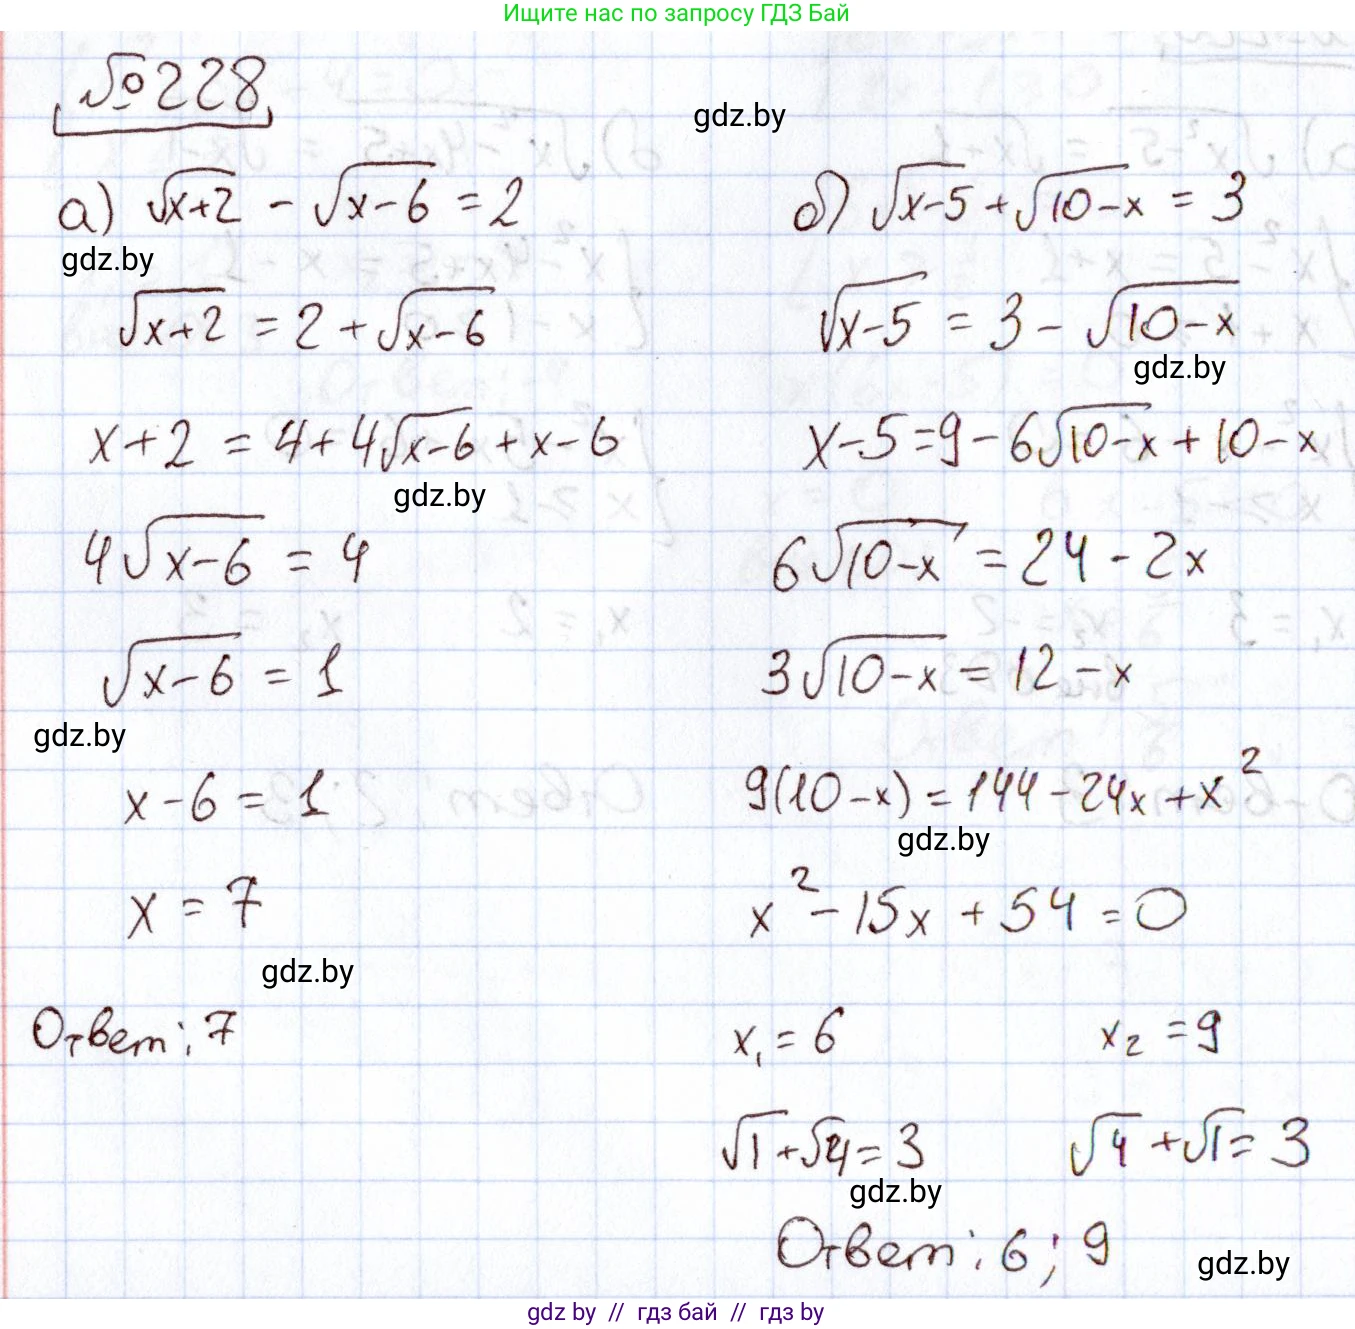 Ищите нас по запросу ГДЗ Бай
№228
gdz.by
а) √(x+2) - √(x-6) = 2
gdz.by
√(x+2) = 2 + √(x-6)
x+2 = 4+4√(x-6) + x-6
gdz.by
4√(x-6) = 4
√(x-6) = 1
gdz.by
x-6 = 1
x = 7
gdz.by
Ответ: 7
б) √(x-5) + √(10-x) = 3
√(x-5) = 3 - √(10-x)
gdz.by
x-5=9-6√(10-x) + 10-x
6√(10-x) = 24-2x
3√(10-x) = 12-x
9(10-x) = 144-24x+x²
gdz.by
x²-15x+54=0
x₁=6 x₂=9
√1+√4=3 √4+√1=3
gdz.by
Ответ: 6; 9
gdz.by
gdz by // гдз бай // гдз by